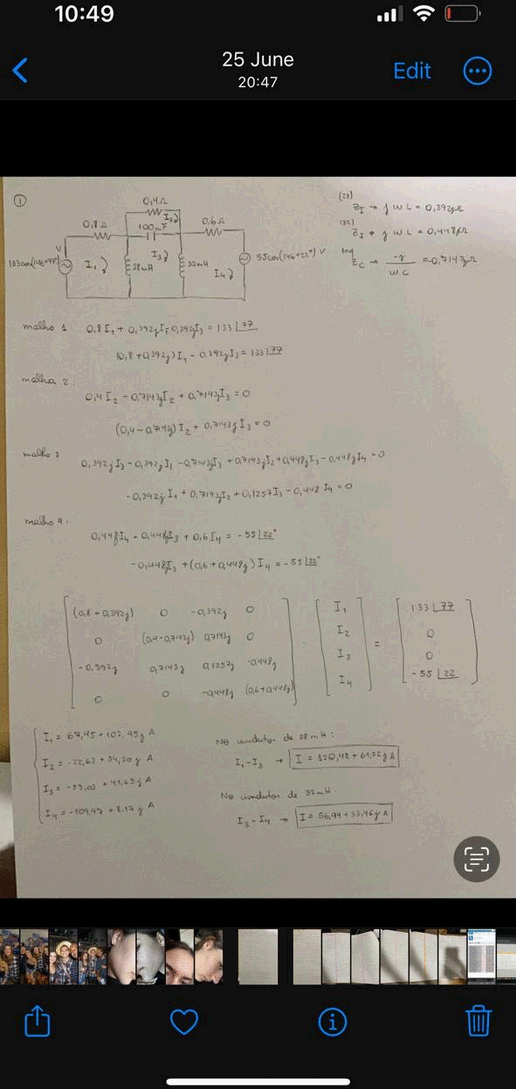 10:49
25 June
20:47
Edit
1
0,4Ω
I₂
0,8Ω
100mF
0,6Ω
V
133cos(14t+77°)
I₁
28mH
I₃
32mH
I₄
55cos(14t+22°) V
(28)
Z_I → jωL = 0,392jΩ
(32)
Z_I → jωL = 0,448jΩ
Z_C → -j/ωC = -0,7143jΩ
malha 1
0,8I₁ + 0,392jI₁ 0,392jI₃ = 133∠77
(0,8 + 0,392j)I₁ - 0,392jI₃ = 133∠77
malha 2
0,4I₂ - 0,7143jI₂ + 0,7143jI₃ = 0
(0,4 - 0,7143j)I₂ + 0,7143jI₃ = 0
malha 3
0,392jI₃ - 0,392jI₁ - 0,7143jI₃ + 0,7143jI₂ + 0,448jI₃ - 0,448jI₄ = 0
-0,392j I₁ + 0,7143jI₂ + 0,1257I₃ - 0,448 I₄ = 0
malha 4:
0,448I₄ - 0,448jI₃ + 0,6I₄ = -55∠22°
-0,448jI₃ + (0,6 + 0,448j)I₄ = -55∠22°
(0,8 + 0,392j) 0 -0,392j 0 I₁ 133∠77
0 (0,4-0,7143j) 0,7143j 0 I₂ 0
-0,392j 0,7143j 0,1257j -0,448j I₃ = 0
0 0 -0,448j (0,6+0,448j) I₄ -55∠22
I₁ = 67,45 + 102,95j A
I₂ = -22,63 + 54,30j A
I₃ = -53,03 + 41,63j A
I₄ = -109,97 + 8,17j A
No indutor de 28 mH:
I₁ - I₃ → I = 120,48 + 61,32j A
No indutor de 32mH
I₃ - I₄ → I = 56,94 + 33,46j A